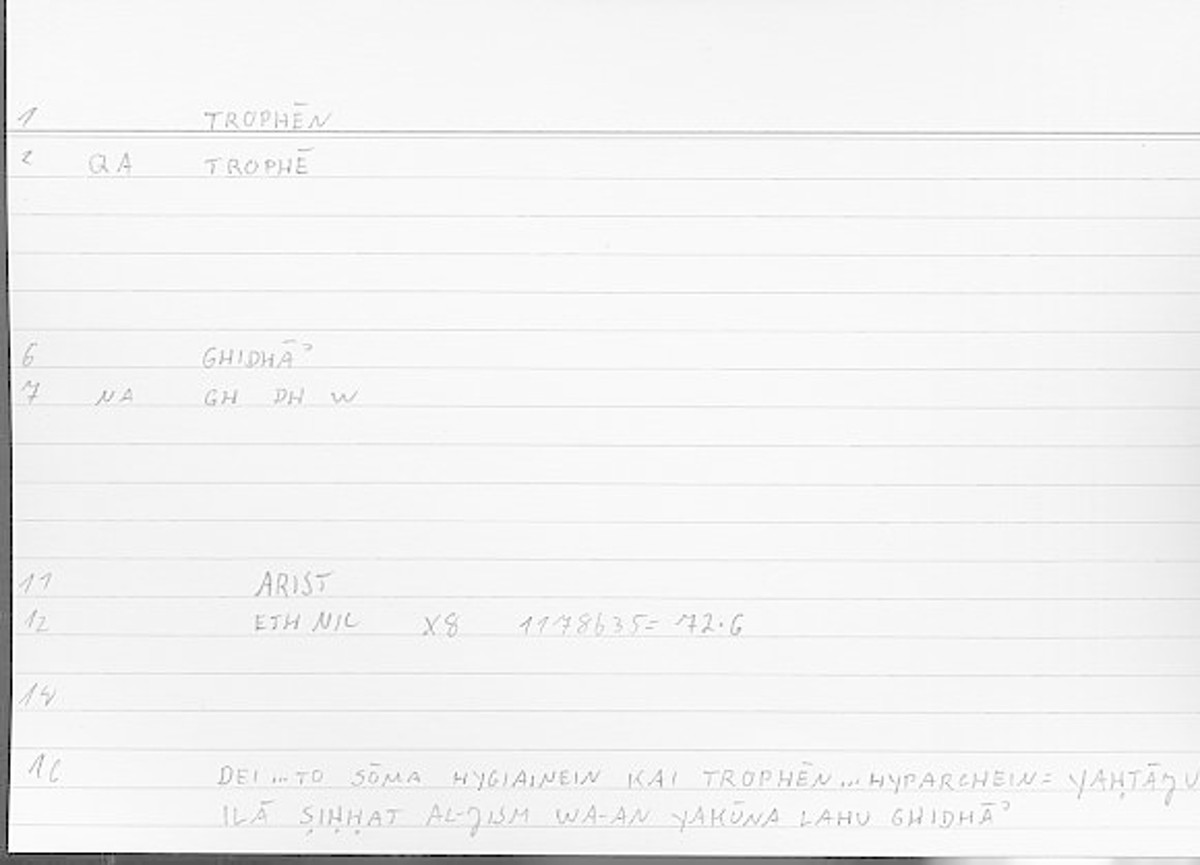 1 TROPHĒN
2 QA TROPHĒ
6 GHIDHĀʾ
7 NA GH DH W
11 ARIST
12 ETH NIC X8 1178b35= 72.6
14
16 DEI...TO SŌMA HYGIAINEIN KAI TROPHĒN...HYPARCHEIN= YAḤTĀJU
ILĀ ṢIḤḤAT AL-JISM WA-AN YAKŪNA LAHU GHIDHĀʾ